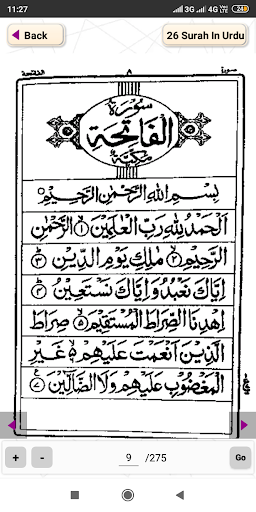 11:27
3G 4G 24
Back
26 Surah In Urdu
الفاتحة
٨
سُوْرَةُ
الْفَاتِحَةِ
مَكِّيَّةٌ
بِسْمِ اللهِ الرَّحْمٰنِ الرَّحِيْمِ
اَلْحَمْدُ لِلّٰهِ رَبِّ الْعٰلَمِيْنَ ۙ﴿۱﴾ الرَّحْمٰنِ
الرَّحِيْمِ ۙ﴿۲﴾ مٰلِكِ يَوْمِ الدِّيْنِ ؕ﴿۳﴾
اِيَّاكَ نَعْبُدُ وَاِيَّاكَ نَسْتَعِيْنُ ؕ﴿۴﴾
اِهْدِنَا الصِّرَاطَ الْمُسْتَقِيْمَ ۙ﴿۵﴾ صِرَاطَ
الَّذِيْنَ اَنْعَمْتَ عَلَيْهِمْ ۙ۬ غَيْرِ
الْمَغْضُوْبِ عَلَيْهِمْ وَلَا الضَّآلِّيْنَ ﴿۷﴾
+ - 9 /275 Go